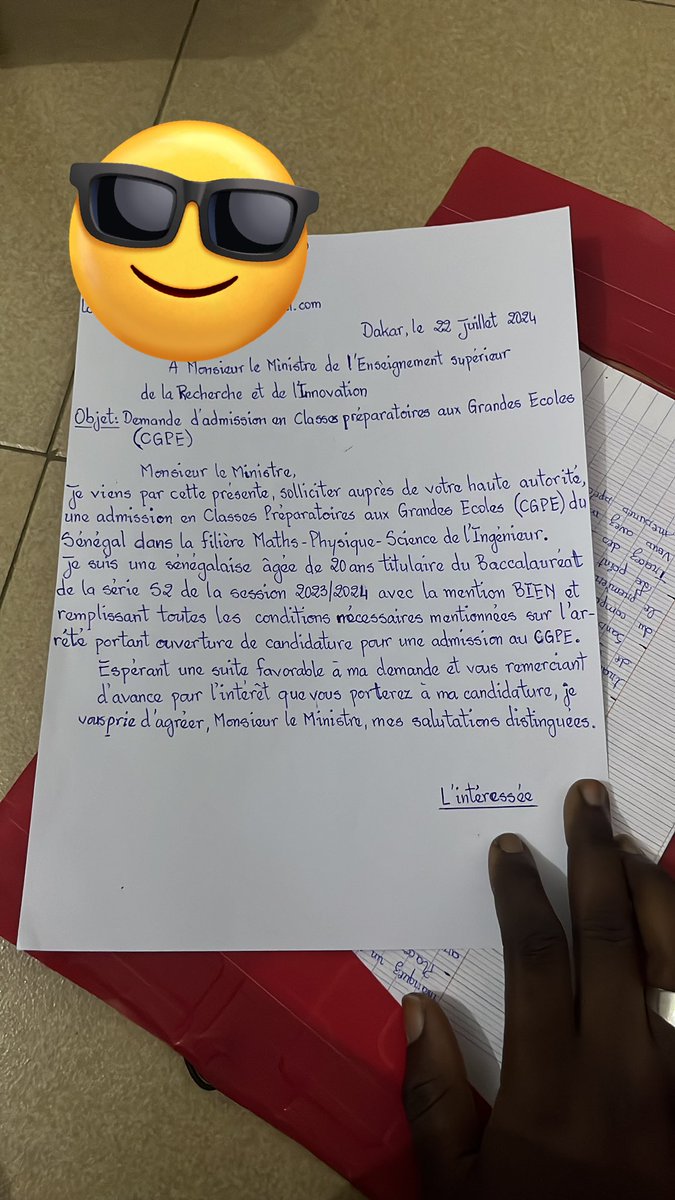 .com
Dakar, le 22 Juillet 2024
A Monsieur le Ministre de l'Enseignement supérieur
de la Recherche et de l'Innovation
Objet: Demande d'admission en Classes préparatoires aux Grandes Ecoles
(CGPE)
Monsieur le Ministre,
Je viens par cette présente, solliciter auprès de votre haute autorité,
une admission en Classes Préparatoires aux Grandes Ecoles (CGPE) du
Sénégal dans la filière Maths-Physique-Science de l'Ingénieur.
Je suis une sénégalaise âgée de 20 ans titulaire du Baccalauréat
de la série S2 de la session 2023/2024 avec la mention BIEN et
remplissant toutes les conditions nécessaires mentionnées sur l'ar-
rêté portant ouverture de candidature pour une admission au CGPE.
Espérant une suite favorable à ma demande et vous remerciant
d'avance pour l'intérêt que vous porterez à ma candidature, je
vous prie d'agréer, Monsieur le Ministre, mes salutations distinguées.
L'intéressée